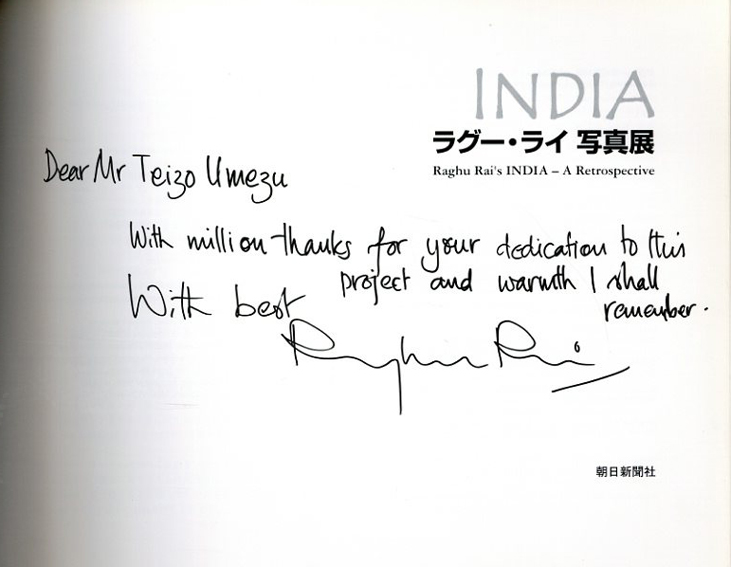 INDIA
ラグー・ライ 写真展
Raghu Rai's INDIA – A Retrospective
Dear Mr Teizo Umezu
With million thanks for your dedication to this
project and warmth I shall
remember.
With best
Raghu Rai
朝日新聞社